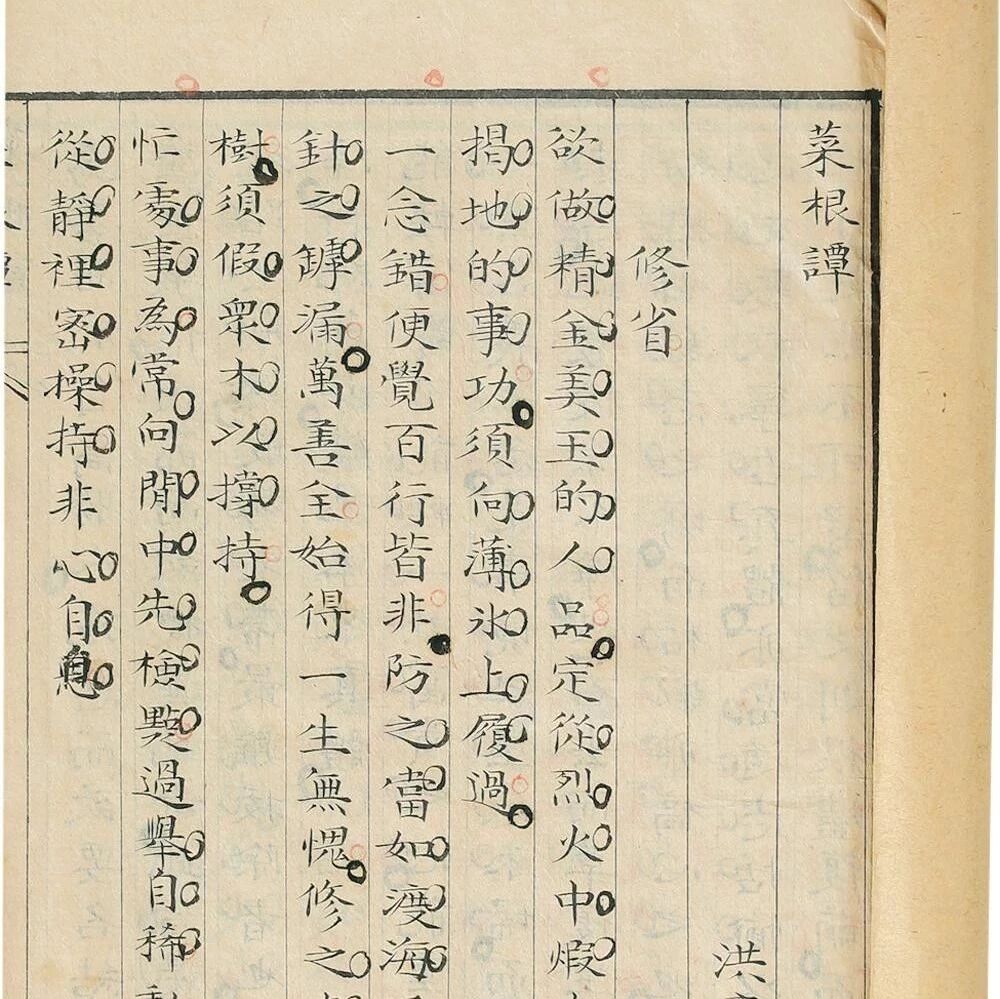 菜根譚
洪
修省
欲做精金美玉的人品定從烈火中煆
揭地的事功須向薄氷上履過
一念錯便覺百行皆非防之當如渡海
針之罅漏萬善全始得一生無愧修之
樹須假衆木以撐持
忙處事為常向閒中先檢點過舉自稀
從靜裡密操持非心自息